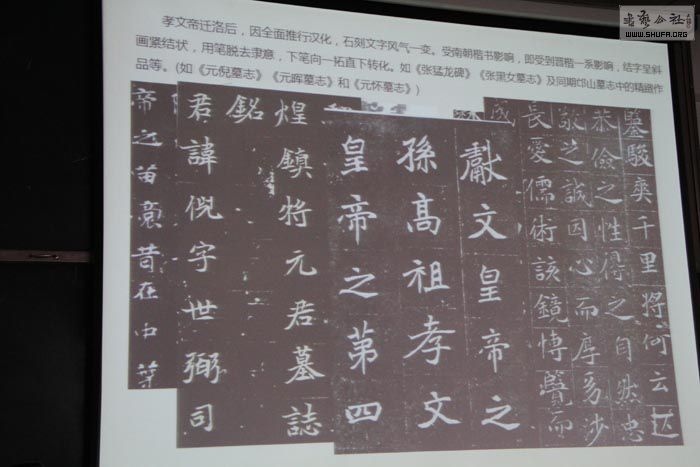 書藝公社
WWW.SHUFA.ORG
孝文帝迁洛后，因全面推行汉化，石刻文字风气一变。受南朝楷书影响，即受到晋楷一系影响，结字呈斜
画紧结状，用笔脱去隶意，下笔向一拓直下转化。如《张猛龙碑》《张黑女墓志》及同期邙山墓志中的精緻作
品等。(如《元倪墓志》《元晖墓志》和《元怀墓志》)
鑒駿奕千里將何云
恭儉之性得之自然忠
敬之誠因心而厚多涉
長愛儒術該鏡博覽而
獻文皇帝之
孫高祖孝文
皇帝之第四
煌鎮將元君墓誌
銘
君諱倪字世弼司
帝之苗裔昔在中葉